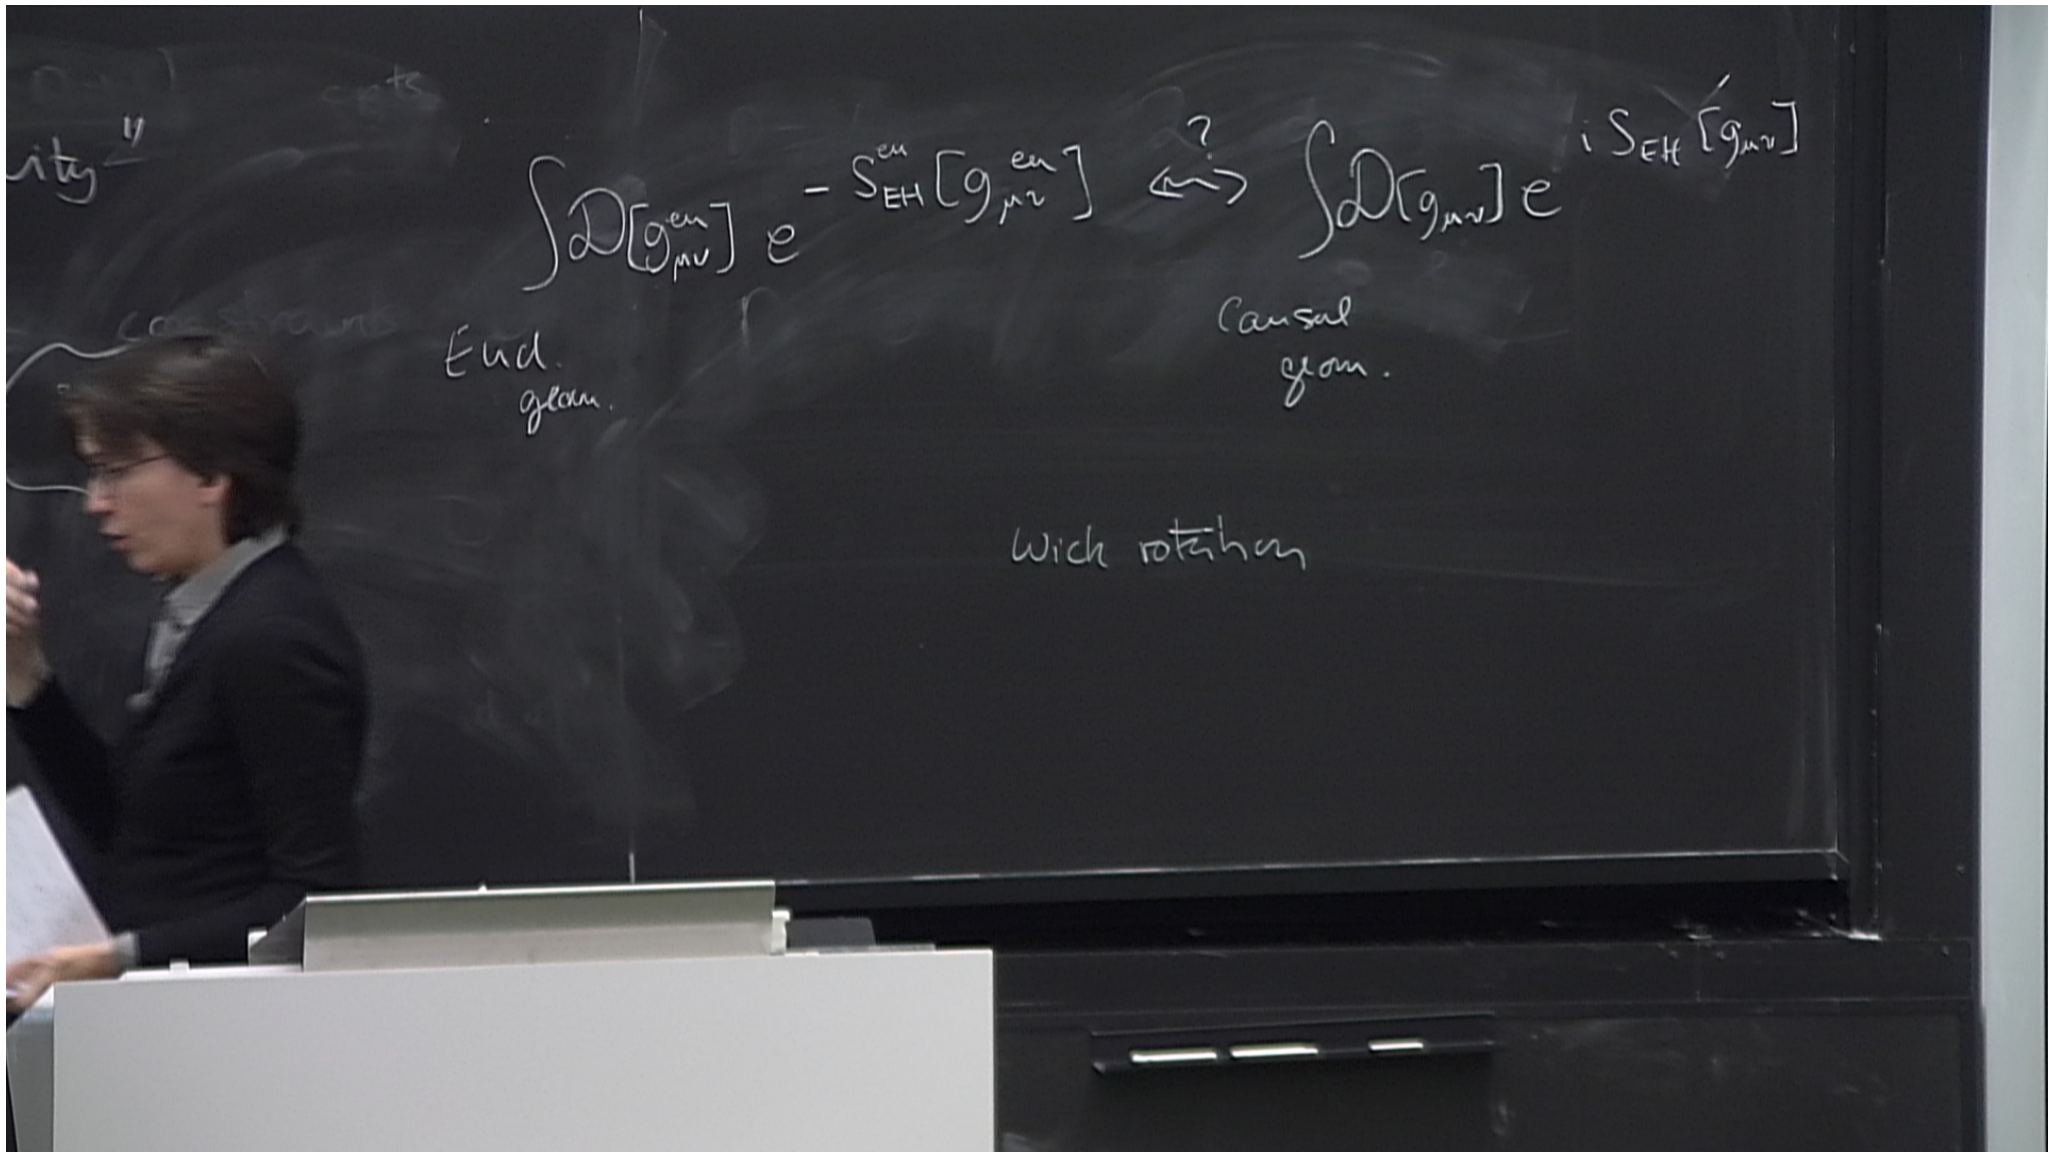 uity"
∫𝒟[g_{μν}^{eu}] e^{-S_{EH}^{eu}[g_{μν}^{eu}]} ⟷^{?} ∫𝒟[g_{μν}] e^{i S_{EH}[g_{μν}]}
Eucl.
geom.
Causal
geom.
Wick rotation